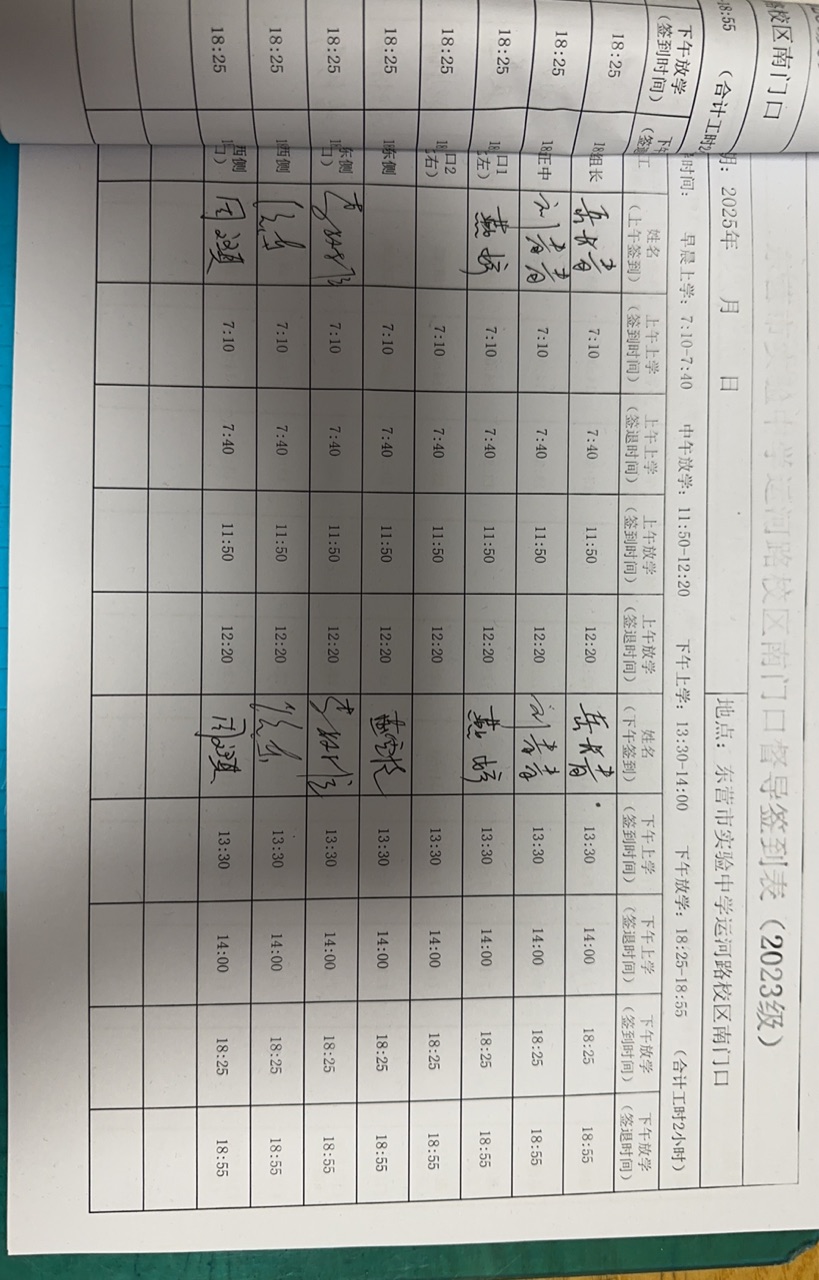 东营市实验中学运河路校区南门口督导签到表（2023级）
2025年 月 日 地点：东营市实验中学运河路校区南门口
时间： 早晨上学：7:10-7:40 中午放学：11:50-12:20 下午上学：13:30-14:00 下午放学：18:25-18:55 （合计工时2小时）
姓名（上午签到） 上午上学（签到时间） 上午上学（签退时间） 上午放学（签到时间） 上午放学（签退时间） 姓名（下午签到） 下午上学（签到时间） 下午上学（签退时间） 下午放学（签到时间） 下午放学（签退时间）
组长 7:10 7:40 11:50 12:20 13:30 14:00 18:25 18:55
正中 刘青青 7:10 7:40 11:50 12:20 刘青青 13:30 14:00 18:25 18:55
口1 左） 7:10 7:40 11:50 12:20 13:30 14:00 18:25 18:55
口2 右） 7:10 7:40 11:50 12:20 13:30 14:00 18:25 18:55
东侧 7:10 7:40 11:50 12:20 13:30 14:00 18:25 18:55
东侧 口） 7:10 7:40 11:50 12:20 13:30 14:00 18:25 18:55
西侧 7:10 7:40 11:50 12:20 13:30 14:00 18:25 18:55
西侧 口） 7:10 7:40 11:50 12:20 13:30 14:00 18:25 18:55
校区南门口
18:55 （合计工时2
下午放学（签到时间）
18:25
18:25
18:25
18:25
18:25
18:25
18:25
18:25